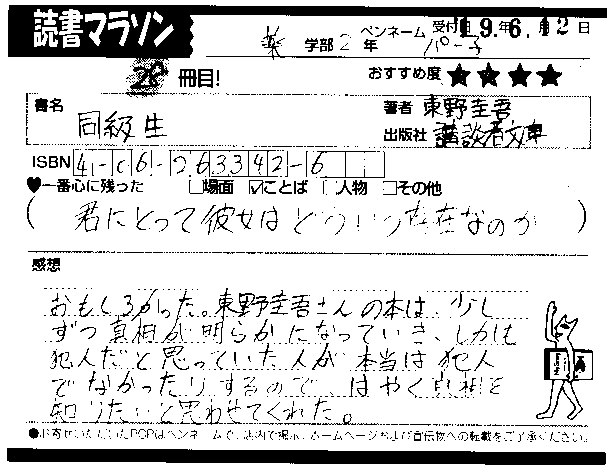 読書マラソン
薬 学部 2 年 ペンネーム パー子 受付 19年 6.月12日
28 冊目! おすすめ度 ★★★★
書名 同級生 著者 東野圭吾
出版社 講談者文庫
ISBN 4-06-263342-6
♥一番心に残った □場面 ☑ことば □人物 □その他
(君にとって彼女はどういう存在なのか)
感想
おもしろかった。東野圭吾さんの本は、少し
ずつ真相が明らかになっていき、しかも
犯人だと思っていた人が本当は犯人
でなかったりするので、はやく真相を
知りたいと思わせてくれた。
●お寄せいただいたPOPはペンネームで、店内で掲示、ホームページおよび宣伝物への転載をご了承ください。